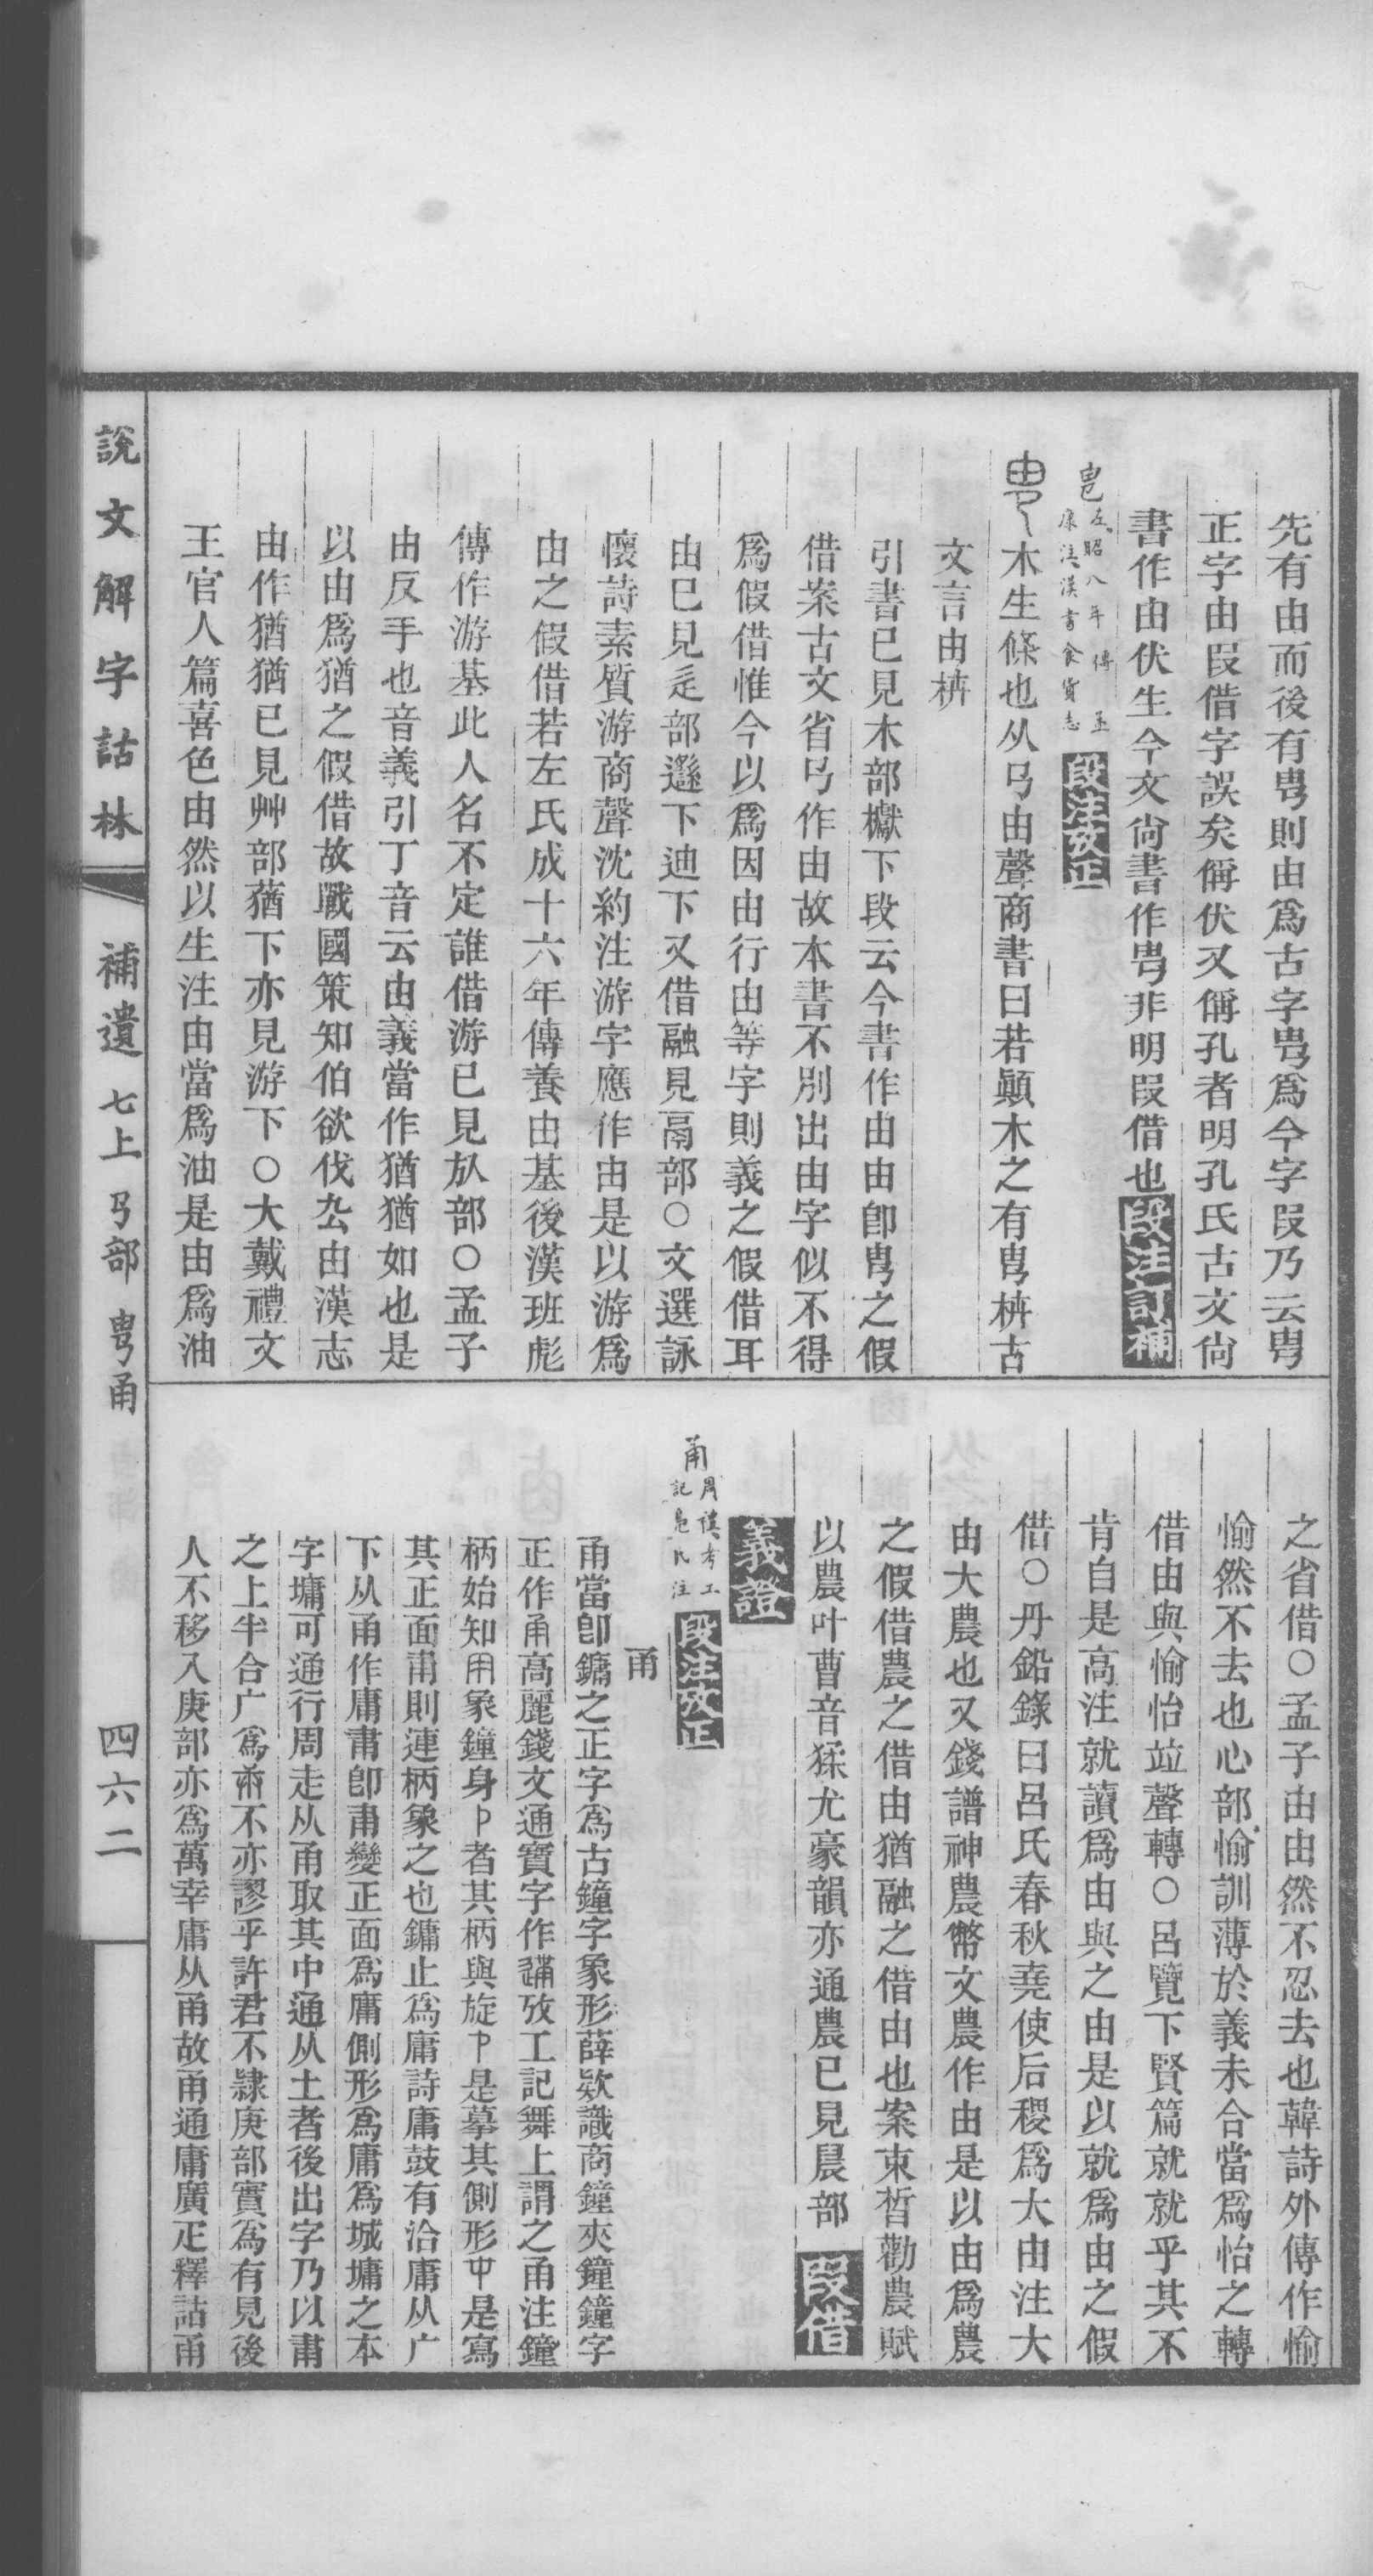 先有由而後有甹則由爲古字甹爲今字段乃云甹
正字由叚借字誤矣偁伏又偁孔者明孔氏古文尙
書作由伏生今文尙書作甹非明叚借也段注訂補
左昭八年傳 孟
康注漢書食貨志
段注攷正
木生條也从㔾由聲商書曰若顚木之有甹枿古
文言由枿
引書已見木部巘下段云今書作由由卽甹之假
借案古文省㔾作由故本書不別出由字似不得
爲假借惟今以爲因由行由等字則義之假借耳
由已見辵部邎下迪下又借融見鬲部○文選詠
懷詩素質游商聲沈約注游字應作由是以游爲
由之假借若左氏成十六年傳養由基後漢班彪
傳作游基此人名不定誰借游已見㫃部○孟子
由反手也音義引丁音云由義當作猶猶如也是
以由爲猶之假借故戰國策知伯欲伐厹由漢志
由作猶猶已見艸部蕕下亦見游下○大戴禮文
王官人篇喜色由然以生注由當爲油是由爲油
之省借○孟子由由然不忍去也韓詩外傳作愉
愉然不去也心部愉訓薄於義未合當爲怡之轉
借由與愉怡竝聲轉○呂覽下賢篇就就乎其不
肯自是高注就讀爲由與之由是以就爲由之假
借○丹鉛錄曰呂氏春秋堯使后稷爲大由注大
由大農也又錢譜神農幣文農作由是以由爲農
之假借農之借由猶融之借由也案束晳勸農賦
以農叶曹音猱尤豪韻亦通農已見晨部 叚借
義證
甬 周漢考工
記鳧氏注
段注攷正
甬
甬當卽鏞之正字爲古鐘字象形薛欵識商鐘夾鐘鐘字
正作甬高麗錢文通寶字作𨔝攷工記舞上謂之甬注鐘
柄始知用象鐘身卪者其柄與旋卪是摹其側形是寫
其正面甫則連柄象之也鏞止爲庸詩庸鼓有洽庸从广
下从甬作庸甫卽甫變正面爲庸側形爲庸爲城墉之本
字墉可通行周走从甬取其中通从土者後出字乃以甫
之上半合广爲不亦謬乎許君不隸庚部實爲有見後
人不移入庚部亦爲萬幸庸从甬故甬通庸廣疋釋詁甬
說文解字詁林 補遺 七上 㔾部 甹甬 四六二